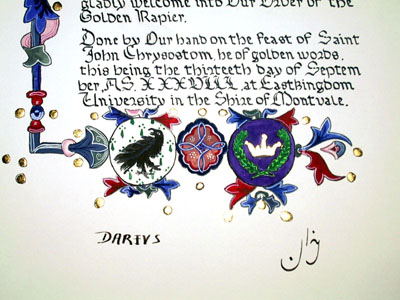 gladly welcome into Our Order of the
Golden Rapier.
Done by Our hand on the feast of Saint
John Chrysostom, he of golden words,
this being the thirteenth day of Septem
ber, A.S. XXXVIII, at Eastkingdom
University in the Shire of Montvale.
DARIVS